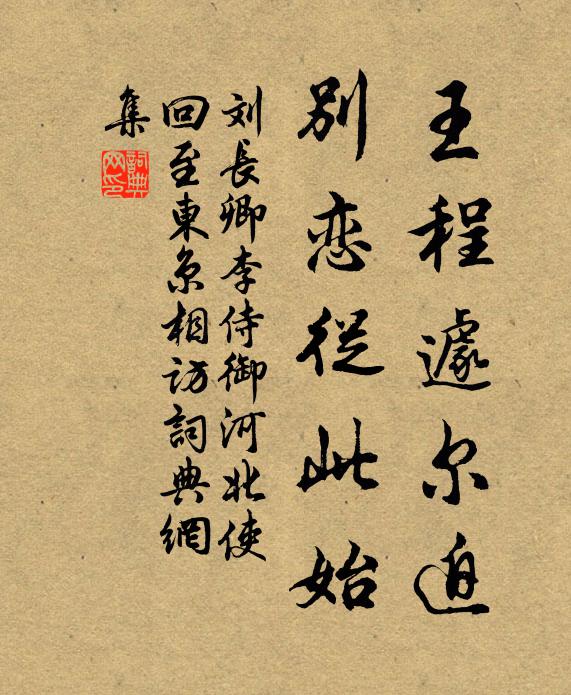 王程遽尔迫
别恋従此始
刘長卿李侍御河北使
回至東京相访詞典網
集
詞典
网印